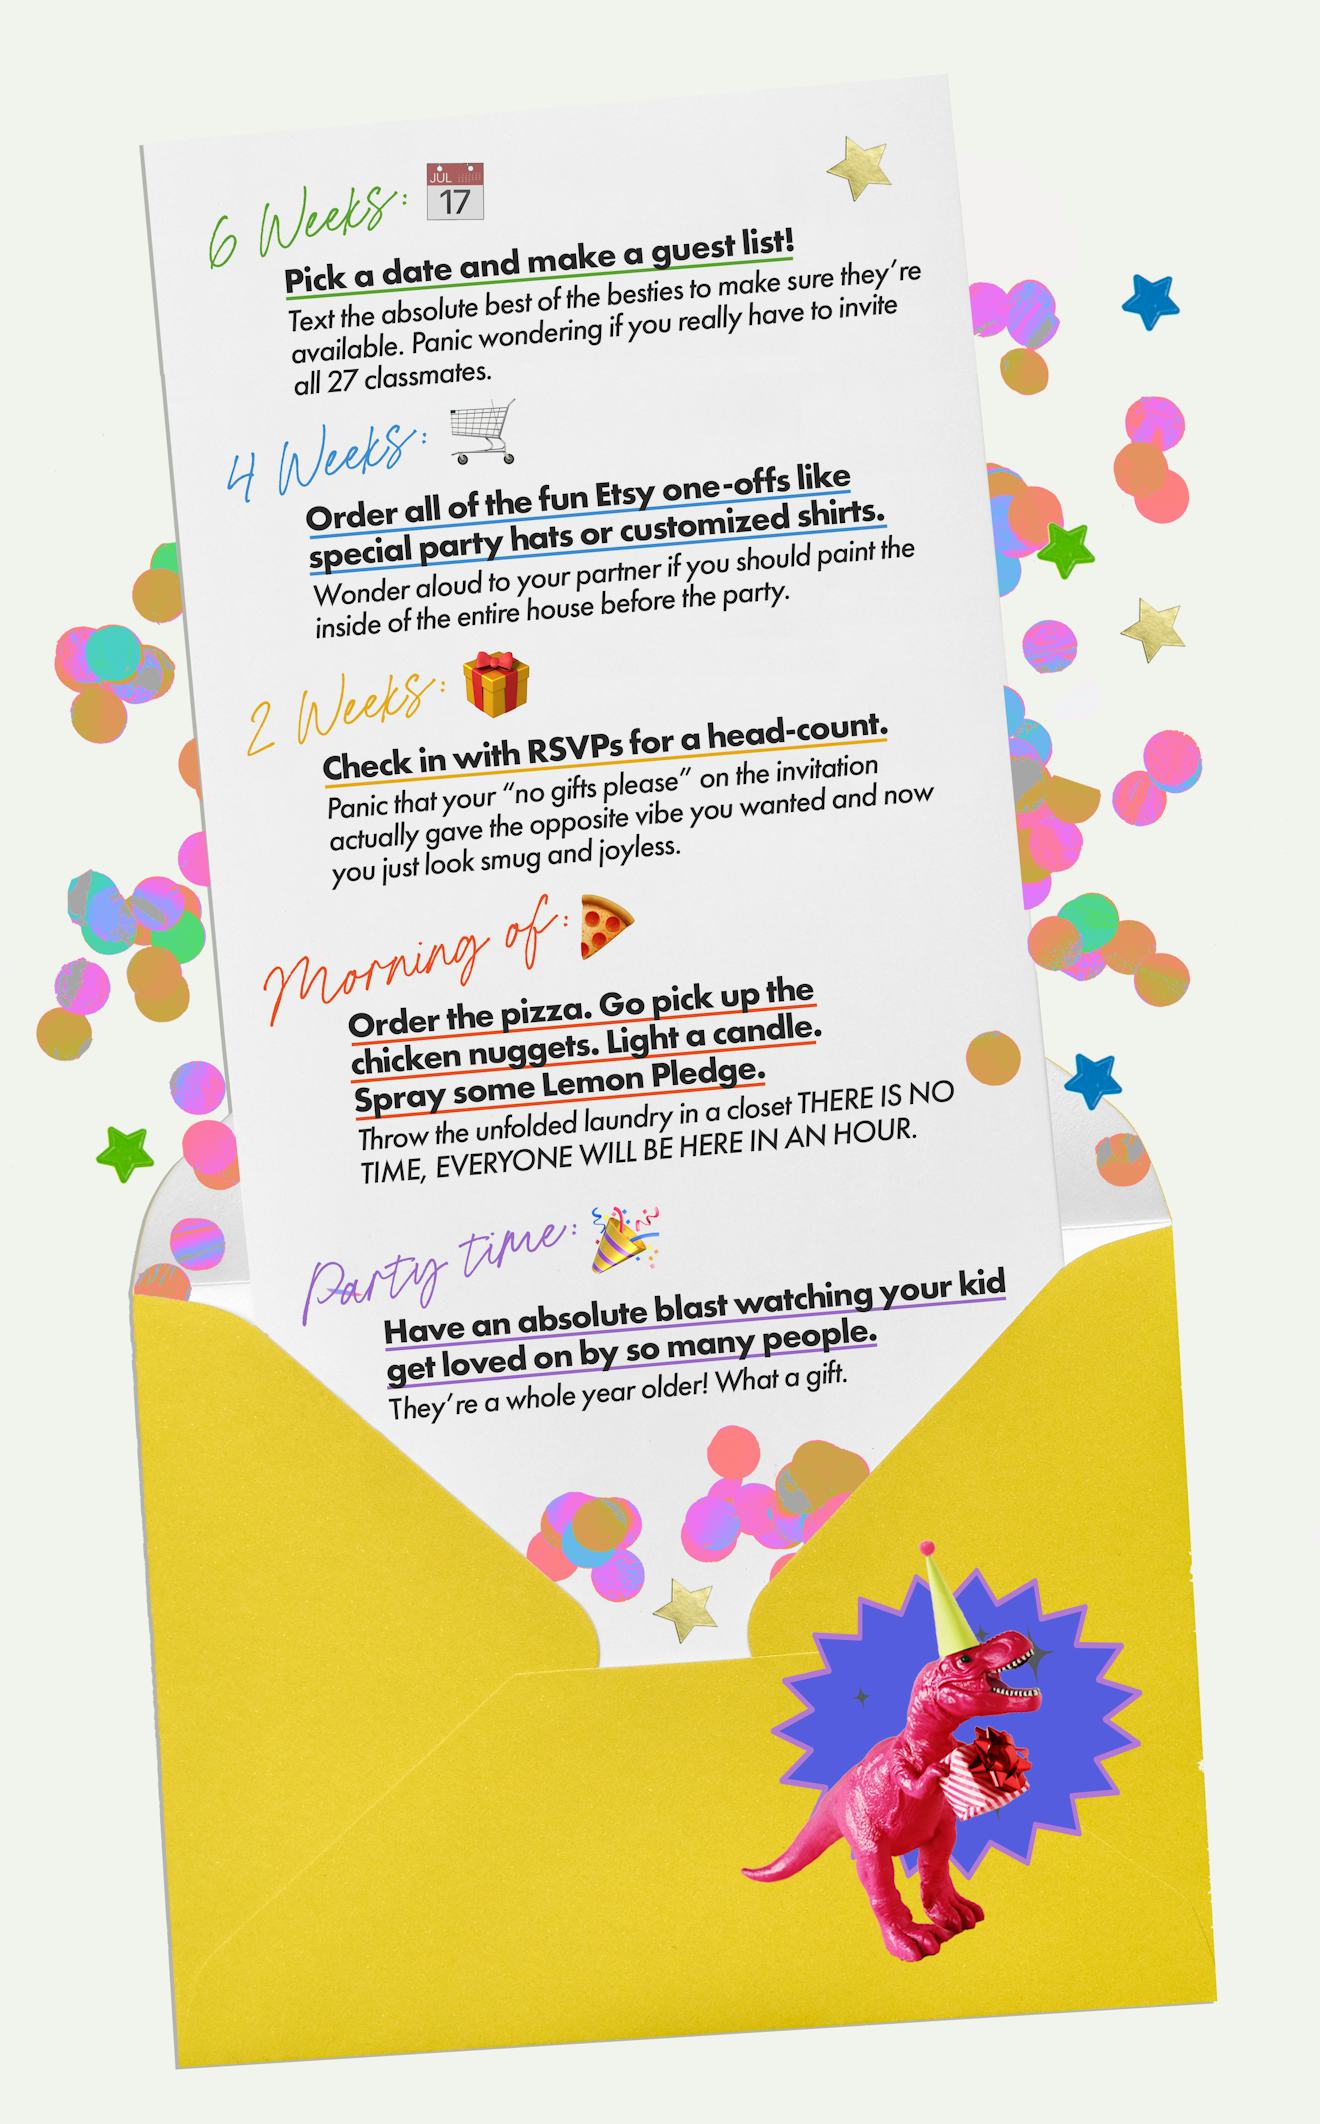 6 Weeks:
JUL
17
Pick a date and make a guest list!
Text the absolute best of the besties to make sure they’re
available. Panic wondering if you really have to invite
all 27 classmates.
4 Weeks:
Order all of the fun Etsy one-offs like
special party hats or customized shirts.
Wonder aloud to your partner if you should paint the
inside of the entire house before the party.
2 Weeks:
Check in with RSVPs for a head-count.
Panic that your “no gifts please” on the invitation
actually gave the opposite vibe you wanted and now
you just look smug and joyless.
Morning of:
Order the pizza. Go pick up the
chicken nuggets. Light a candle.
Spray some Lemon Pledge.
Throw the unfolded laundry in a closet THERE IS NO
TIME, EVERYONE WILL BE HERE IN AN HOUR.
Party time:
Have an absolute blast watching your kid
get loved on by so many people.
They’re a whole year older! What a gift.